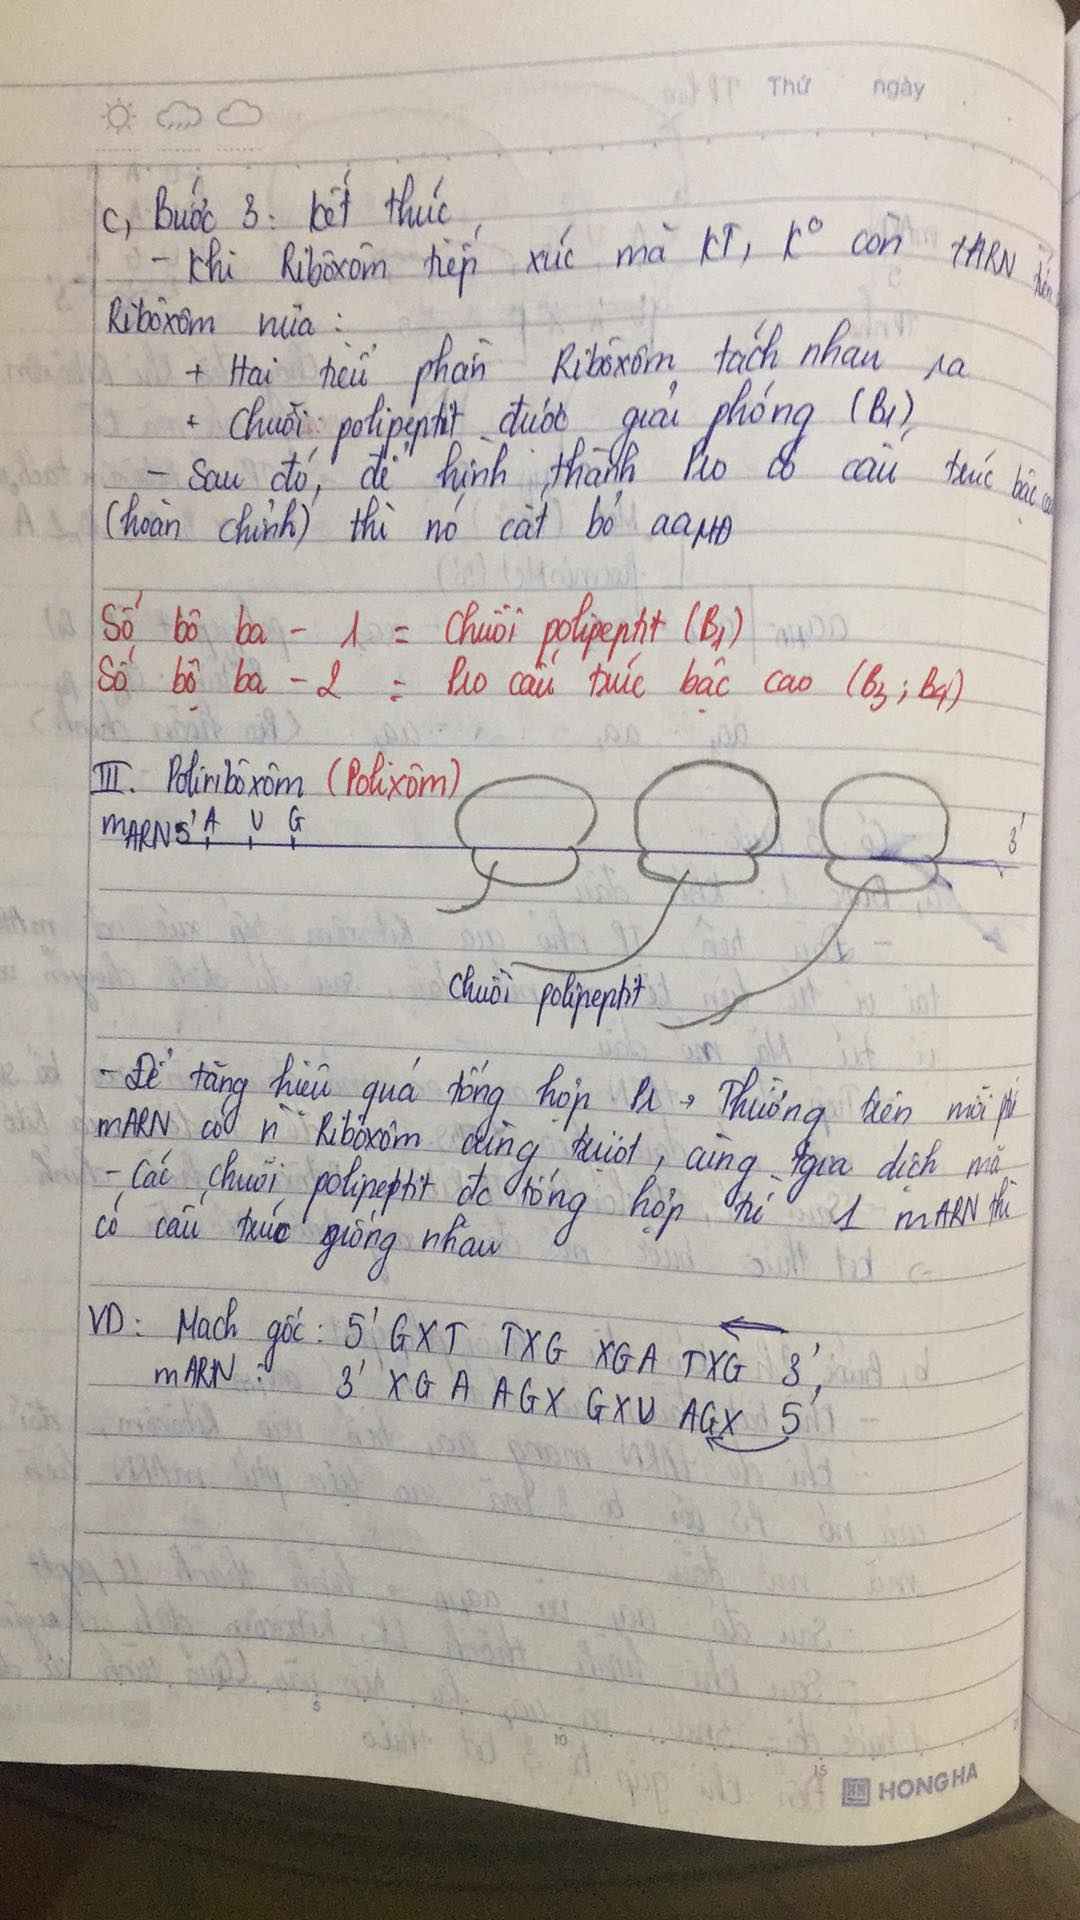 Thứ ngày
c, Bước 3: kết thúc
- Khi Ribôxôm tiếp xúc mã KT, K° còn tARN trên
Ribôxôm nữa:
+ Hai tiểu phần Ribôxôm tách nhau ra
+ Chuỗi polipeptit được giải phóng (B1)
- Sau đó, để hình thành Pro có cấu trúc bậc cao
(hoàn chỉnh) thì nó cắt bỏ aaMĐ
Số bộ ba - 1 = Chuỗi polipeptit (B1)
Số bộ ba - 2 = Pro cấu trúc bậc cao (B3; B4)
III. Poliribôxôm (Polixôm)
mARN 5' A U G 3'
Chuỗi polipeptit
- Để tăng hiệu quả tổng hợp Pr → Thường trên mỗi
mARN có n Ribôxôm cùng trượt, cùng tgia dịch mã
- Các chuỗi polipeptit đc tổng hợp từ 1 mARN thì
có cấu trúc giống nhau
VD: Mạch gốc: 5' GXT TXG XGA TXG 3'
mARN: 3' XGA AGX GXU AGX 5'
5
10
15
HONG HA